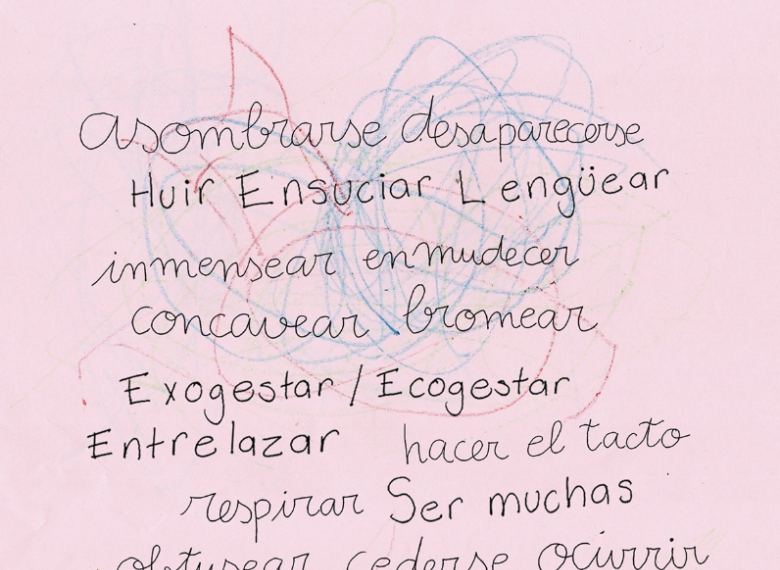 asombrarse desaparecerse
Huir Ensuciar Lengüear
inmensear enmudecer
concavear bromear
Exogestar / Ecogestar
Entrelazar hacer el tacto
respirar Ser muchas
obtusear cederse ocurrir